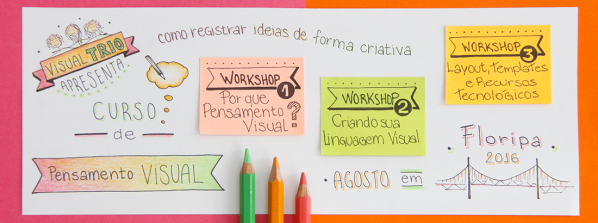 VISUAL TRIO
APRESENTA
CURSO
de
Pensamento VISUAL
como registrar ideias de forma criativa
WORKSHOP 1
Por que
Pensamento
Visual ?
WORKSHOP 2
Criando sua
linguagem Visual
WORKSHOP 3
Layout, Templates
e Recursos
Tecnológicos
• AGOSTO em
Floripa
2016